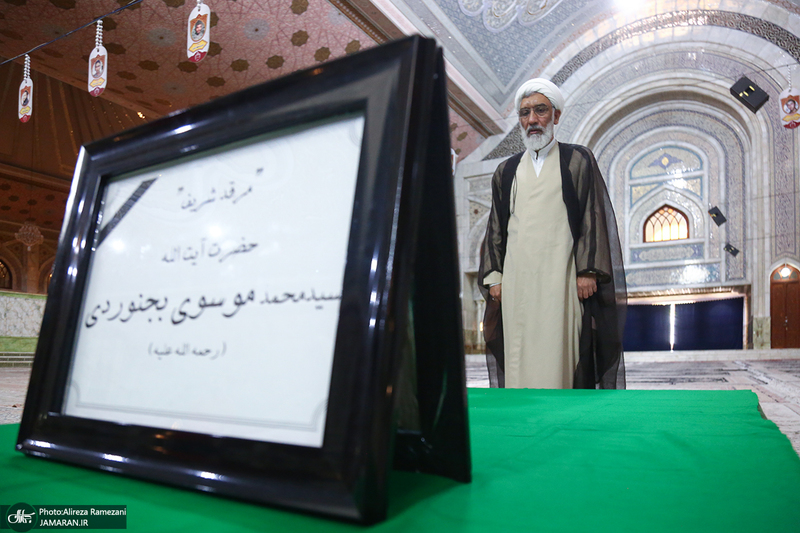 "مرقد شریف"
حضرت آیت الله
سید محمد موسوی بجنوردی
(رحمه الله علیه)
Photo:Alireza Ramezani
JAMARAN.IR